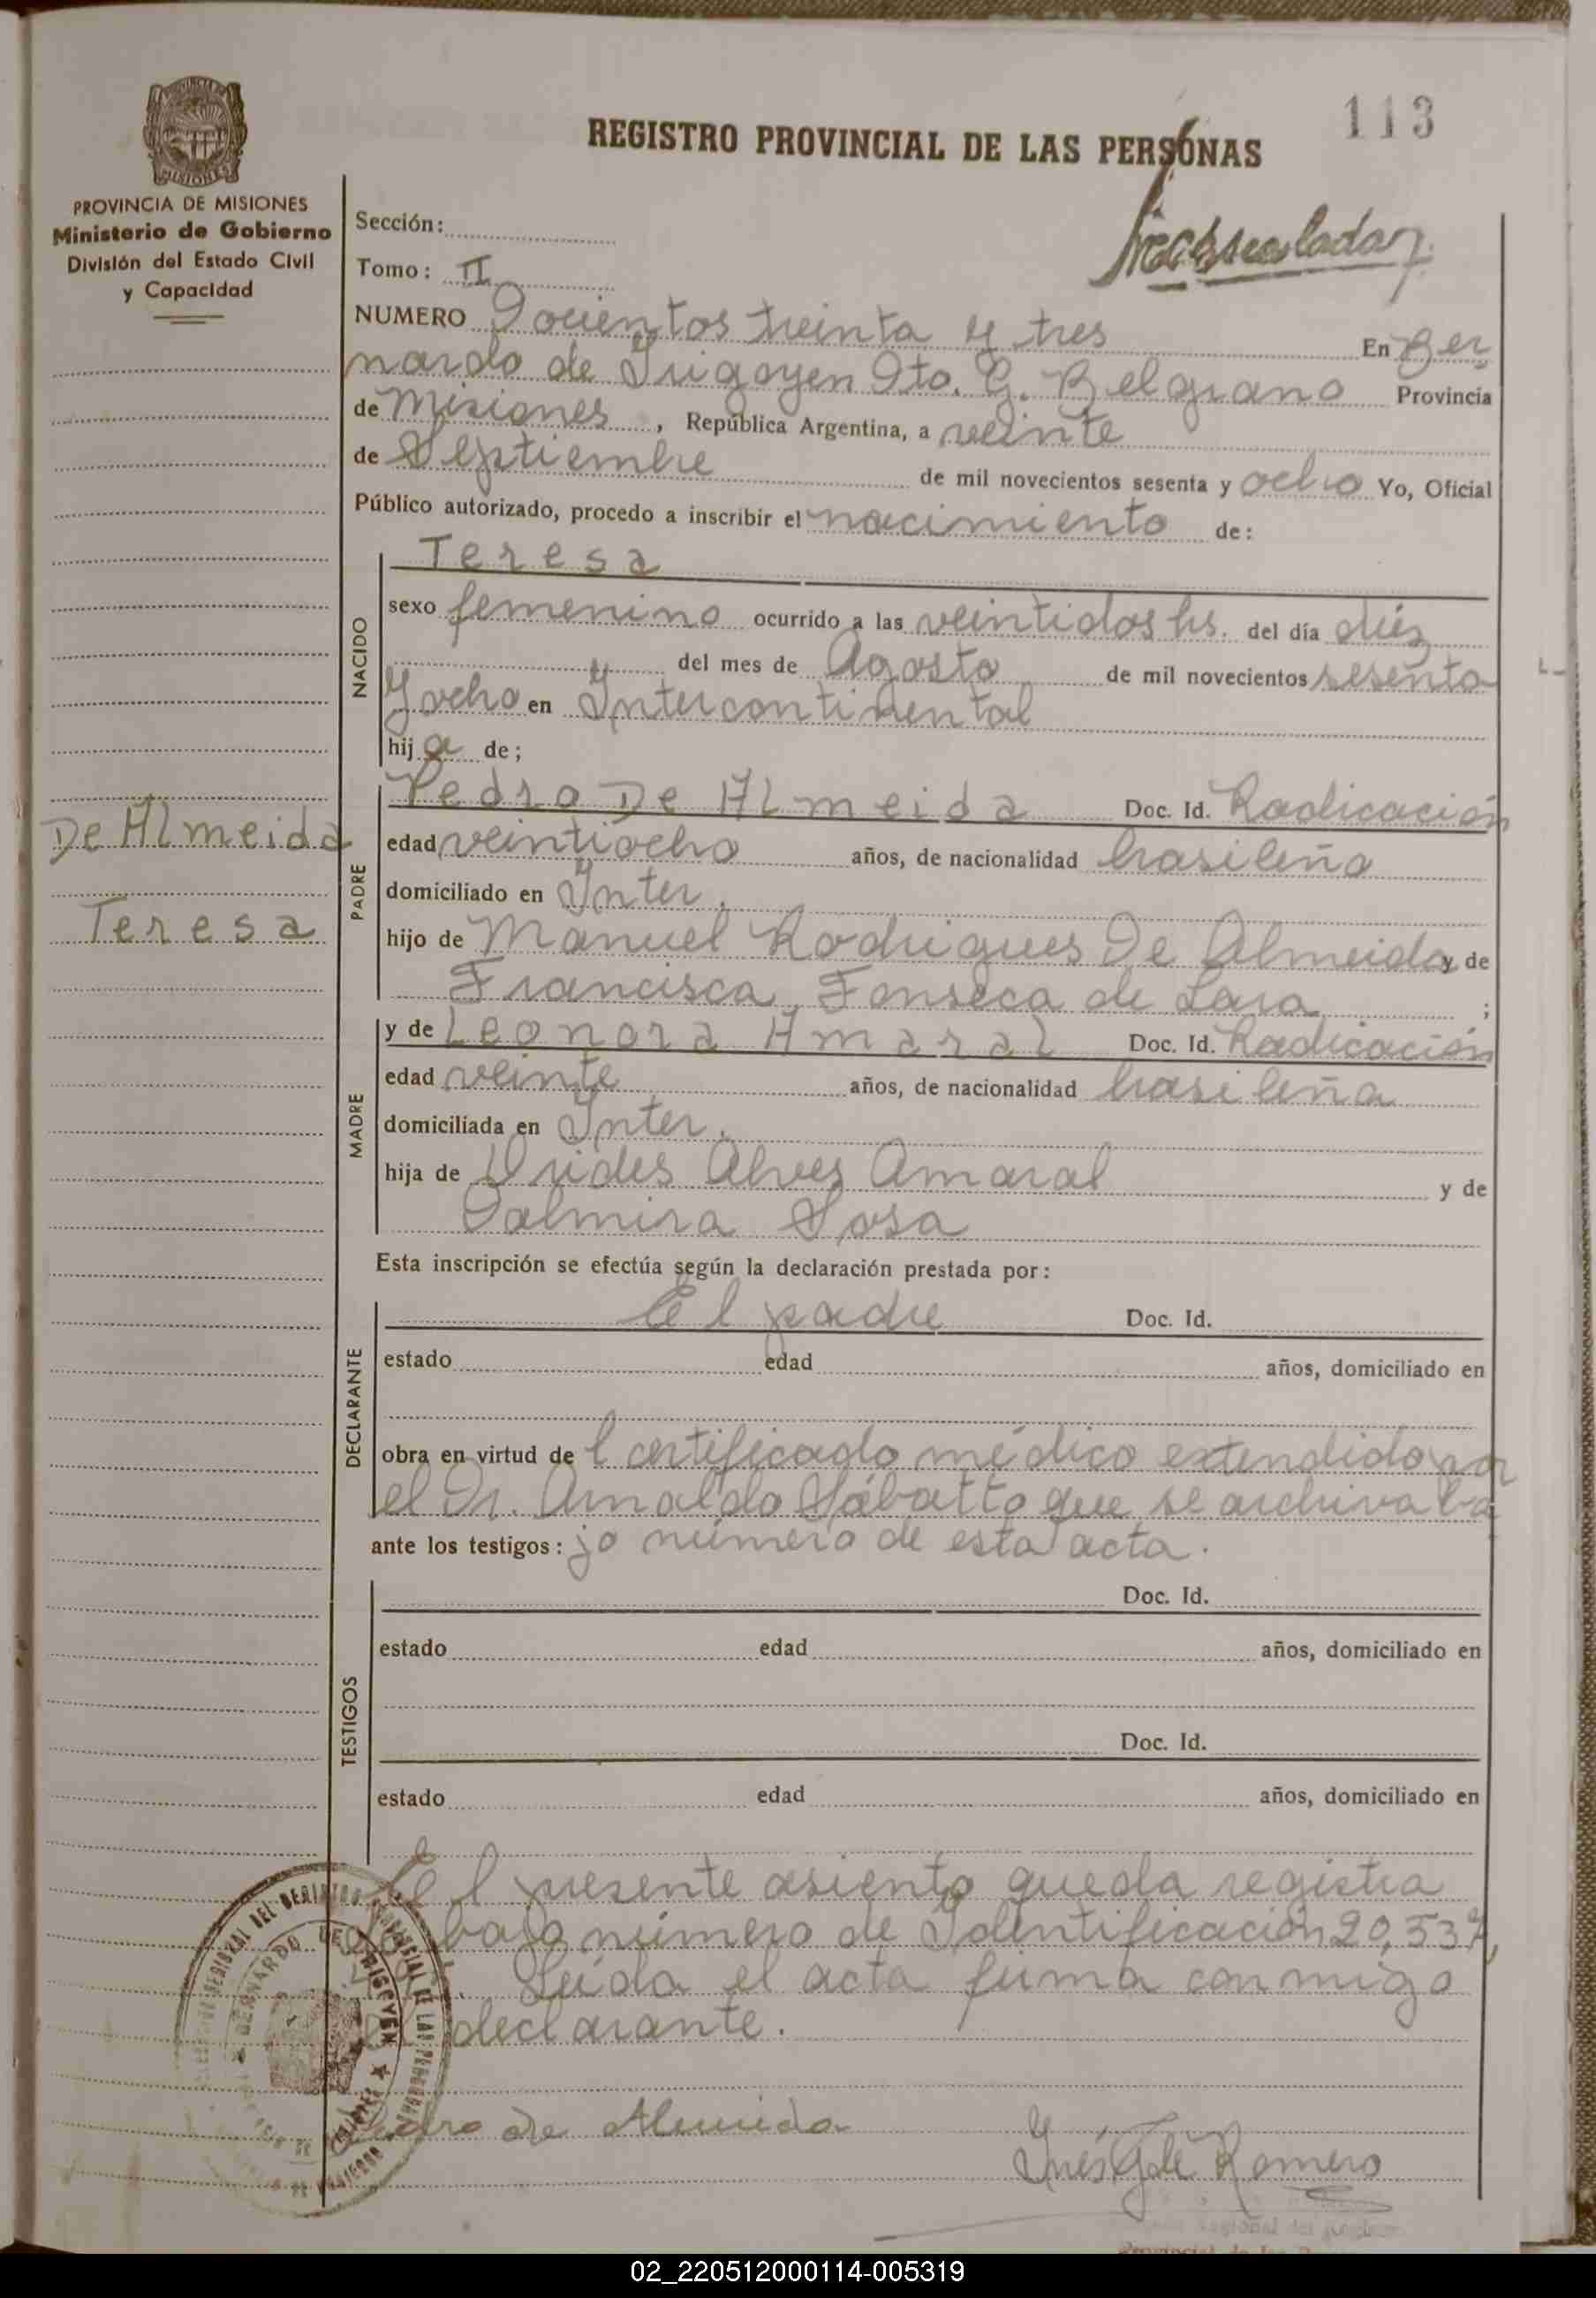 113
REGISTRO PROVINCIAL DE LAS PERSONAS
PROVINCIA DE MISIONES
Ministerio de Gobierno
División del Estado Civil
y Capacidad
Sección:
Tomo: II
NUMERO Docientos treinta y tres En Ber
nardo de Irigoyen Dto. G. Belgrano Provincia
de Misiones, República Argentina, a veinte
de Septiembre de mil novecientos sesenta y ocho Yo, Oficial
Público autorizado, procedo a inscribir el nacimiento de:
NACIDO
Teresa
sexo femenino ocurrido a las veintidos hs. del día diéz
del mes de Agosto de mil novecientos sesenta
Y ocho en Intercontinental
hija de;
De Almeida
Teresa
PADRE
Pedro De Almeida Doc. Id. Radicación
edad veintiocho años, de nacionalidad brasileña
domiciliado en Inter.
hijo de Manuel Rodrigues De Almeida y de
Francisca Fonseca de Lara ;
MADRE
y de Leonora Amaral Doc. Id. Radicación
edad veinte años, de nacionalidad brasileña
domiciliada en Inter.
hija de Alves Amaral y de
Palmira Sosa
Esta inscripción se efectúa según la declaración prestada por:
DECLARANTE
El padre Doc. Id.
estado edad años, domiciliado en
obra en virtud de l certificado médico extendido por
el Dr. Arnaldo Sábatto que se archiva ba
ante los testigos: jo número de esta acta.
TESTIGOS
Doc. Id.
estado edad años, domiciliado en
Doc. Id.
estado edad años, domiciliado en
El presente asiento queda registra
bajo número de Identificación 20,537,
Leída el acta firma conmigo
el declarante.
Pedro De Almeida
Inés G de Romero
02_220512000114-005319